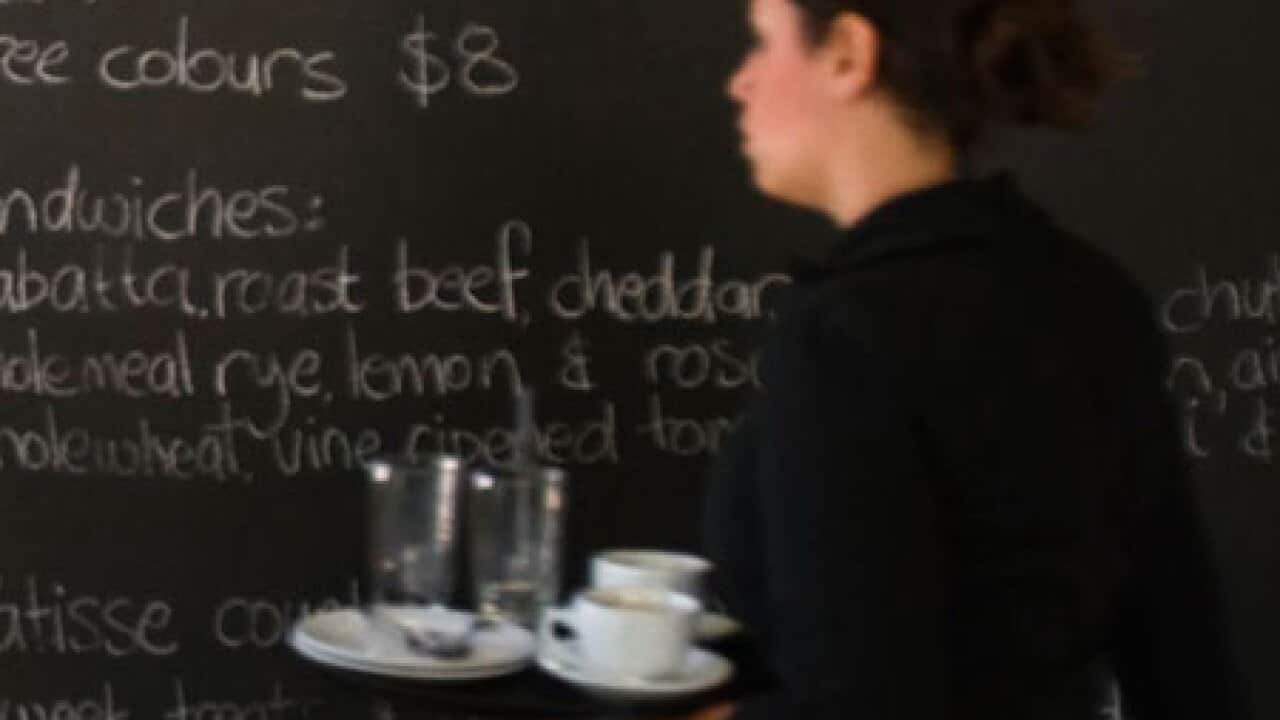 ree colours $8
ndwiches:
abatta, roast beef, cheddar, chut
olemeal rye, lemon & ros n, ai
holewheat, vine ripened tom i' &
atisse cou